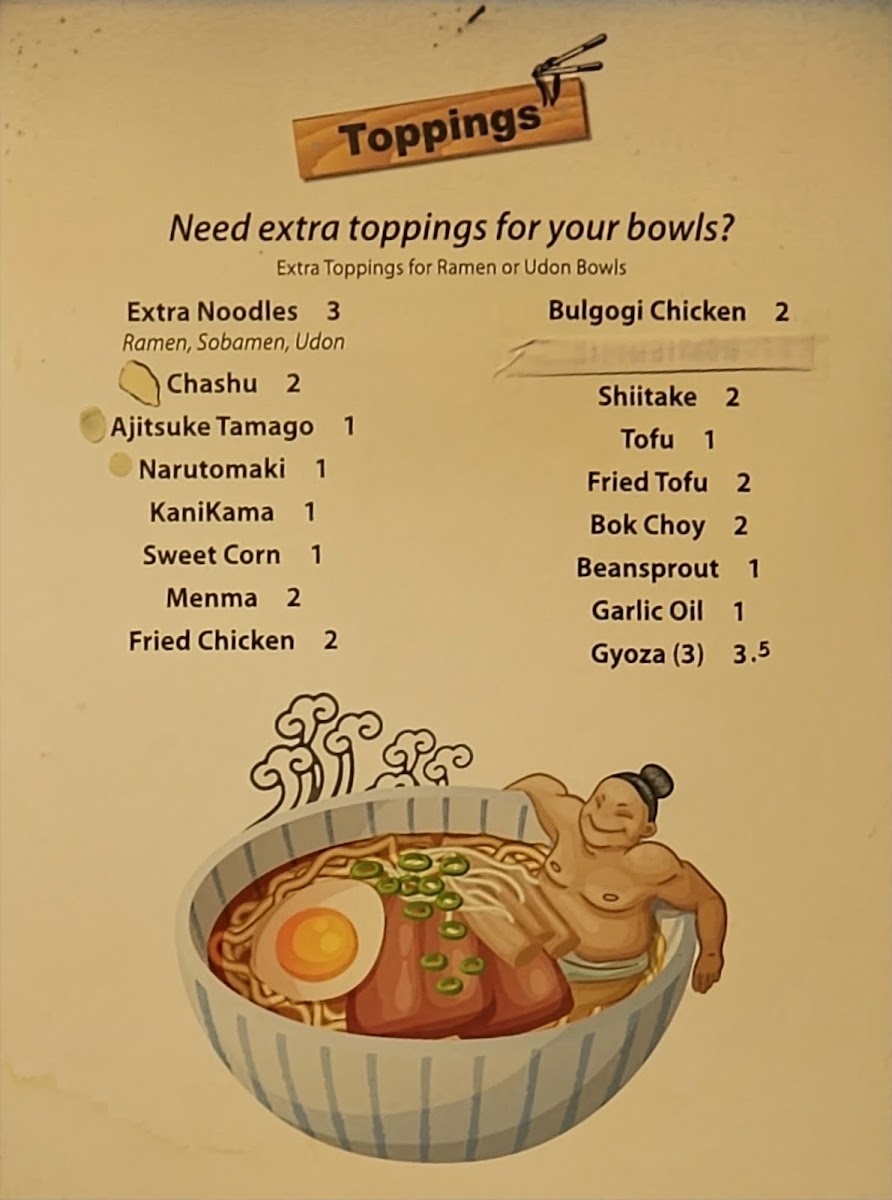 Toppings
Need extra toppings for your bowls?
Extra Toppings for Ramen or Udon Bowls
Extra Noodles 3
Ramen, Sobamen, Udon
Chashu 2
Ajitsuke Tamago 1
Narutomaki 1
KaniKama 1
Sweet Corn 1
Menma 2
Fried Chicken 2
Bulgogi Chicken 2
Shiitake 2
Tofu 1
Fried Tofu 2
Bok Choy 2
Beansprout 1
Garlic Oil 1
Gyoza (3) 3.5